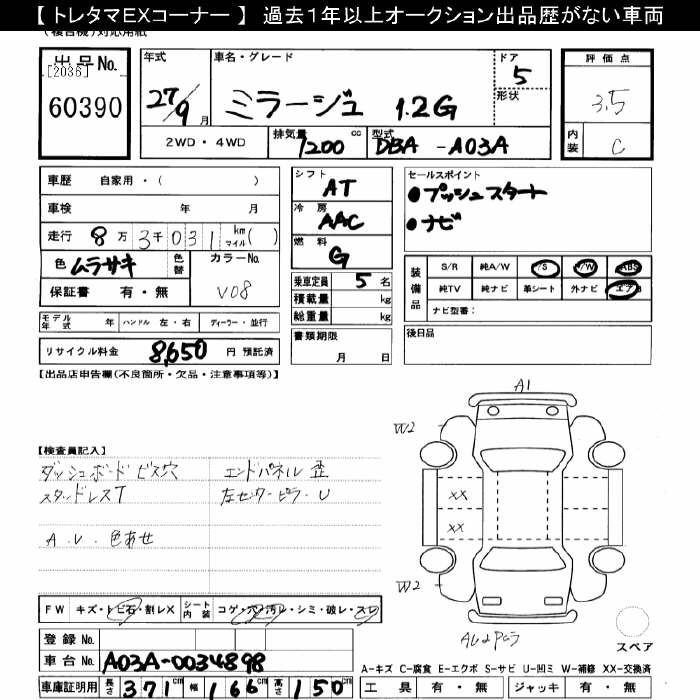 【トレタマEXコーナー】 過去1年以上オークション出品歴がない車両
(複合機)対応用紙
出品No.
[2036]
60390
年式
27/9月
車名・グレード
ミラージュ 1.2G
ドア
5
形状
評価点
3.5
内装
C
2WD・4WD
排気量
1200 cc
型式
DBA-A03A
車歴 自家用・( )
車検 年 月
走行 8万3千031 km マイル( )
色 ムラサキ
色替
カラーNo.
V08
保証書 有・無
シフト
AT
冷房
AAC
燃料
G
乗車定員 5名
積載量 kg
総重量 kg
書類期限
月 日
セールスポイント
●プッシュスタート
●ナビ
装備品
S/R 純A/W P/S P/W ABS
純TV 純ナビ 革シート 外ナビ エアB
ナビ型番:
後日品
モデル年式 年 ハンドル 左・右 ディーラー・並行
リサイクル料金 8,650 円 預託済
【出品店申告欄(不良箇所・欠品・注意事項等)】
【検査員記入】
ダッシュボード ビス穴
エンドパネル 歪
スタッドレスT
左センターピラーU
A.U.色あせ
A1
W2
XX
XX
W2
スペア
FW キズ・トビ石・割レX
シート内装 コゲ・穴・汚レ・シミ・破レ・スレ
登録No.
車台No. A03A-0034898
車庫証明用 長さ 371cm 幅 166cm 高さ 150cm
A-キズ C-腐食 E-エクボ S-サビ U-凹ミ W-補修 XX-交換済
工具 有・無 ジャッキ 有・無